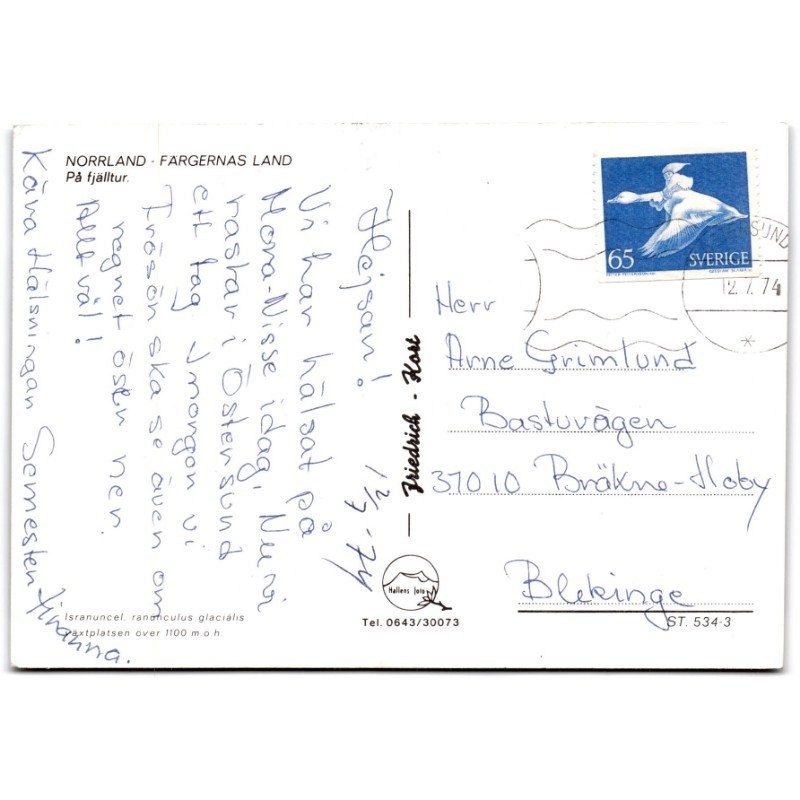 NORRLAND · FÄRGERNAS LAND
På fjälltur.
Hejsan! 12/7-74
Vi har hälsat på
Mora-Nisse idag. Nu
raskar i Östersund
ett tag. Imorgon vi
Frösön ska se även om
regnet öser ner.
Allt väl!
Kära Hälsningar Semester-
Isranuncel. ranunculus glacialis
Växtplatsen över 1100 m.o.h.
Friedrich - Kort
Hallens foto
Tel. 0643/30073
65 SVERIGE
SUND
12.7.74
Herr
Arne Grimlund
Bastuvägen
37010 Bräkne-Hoby
Blekinge
ST. 534-3